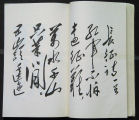 长征诗一首
红军不怕
远征难
万水千山
只等闲
五岭逶迤